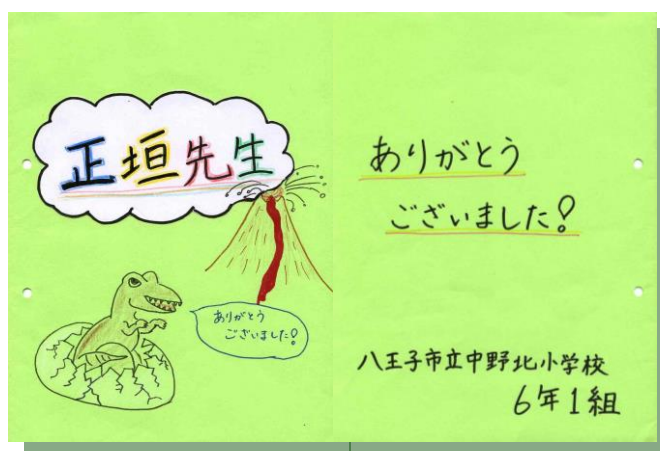 正垣先生
ありがとう
ございました!
ありがとう
ございました!
八王子市立中野北小学校
6年1組